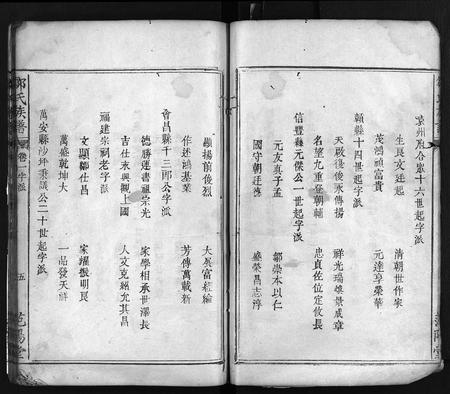 袁州府合忠十六世起字派
生良文廷起　清朝世作家
茂鴻禎富貴　元達享榮華
贛縣十四世起字派
天啟後俊永傳揚　祥光瑞雄景咸章
名望九重登朝輔　忠貞佐位定攸長
信豐縣元傑公一世起字派
元友真子孟　鄒崇本以仁
國守朝廷　盛榮昌志淳
顯揚前俊烈　大展富經綸
作述鴻基業　芳傳萬載新
會昌縣十三郎公字派
德勝連書祖宗光　家學相承世澤長
吉仕來興觀上國　人文克紹允其昌
福建宗祠老字派
文顯鄒仕昌　家耀振明良
萬盛乾坤大　一品發天祥
萬安縣沙坪秉議公二十世起字派
鄒氏族譜
卷一字派
五
范陽堂
范陽堂